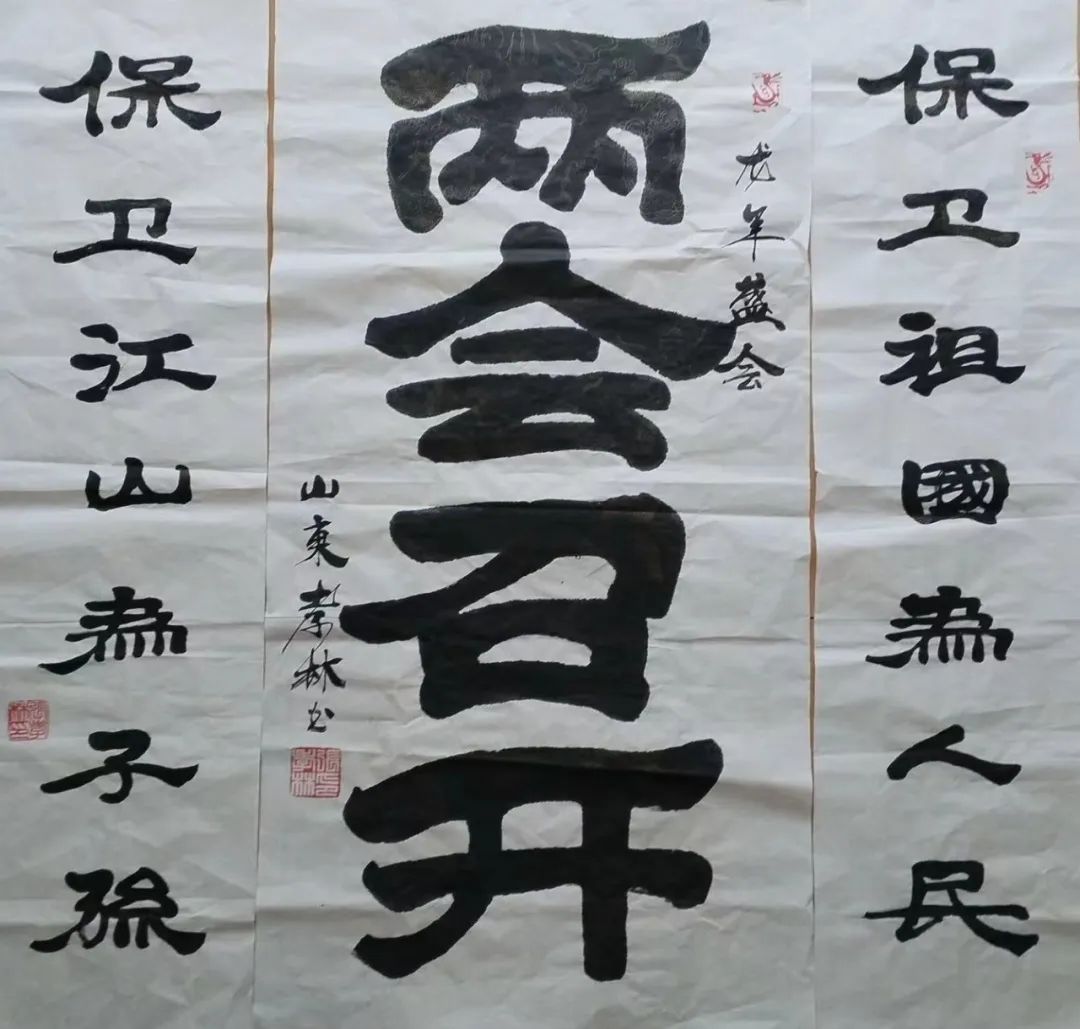 保卫祖國為人民
龙年盛会
两会召开
山东孝林书
張孝林印
保卫江山為子孫